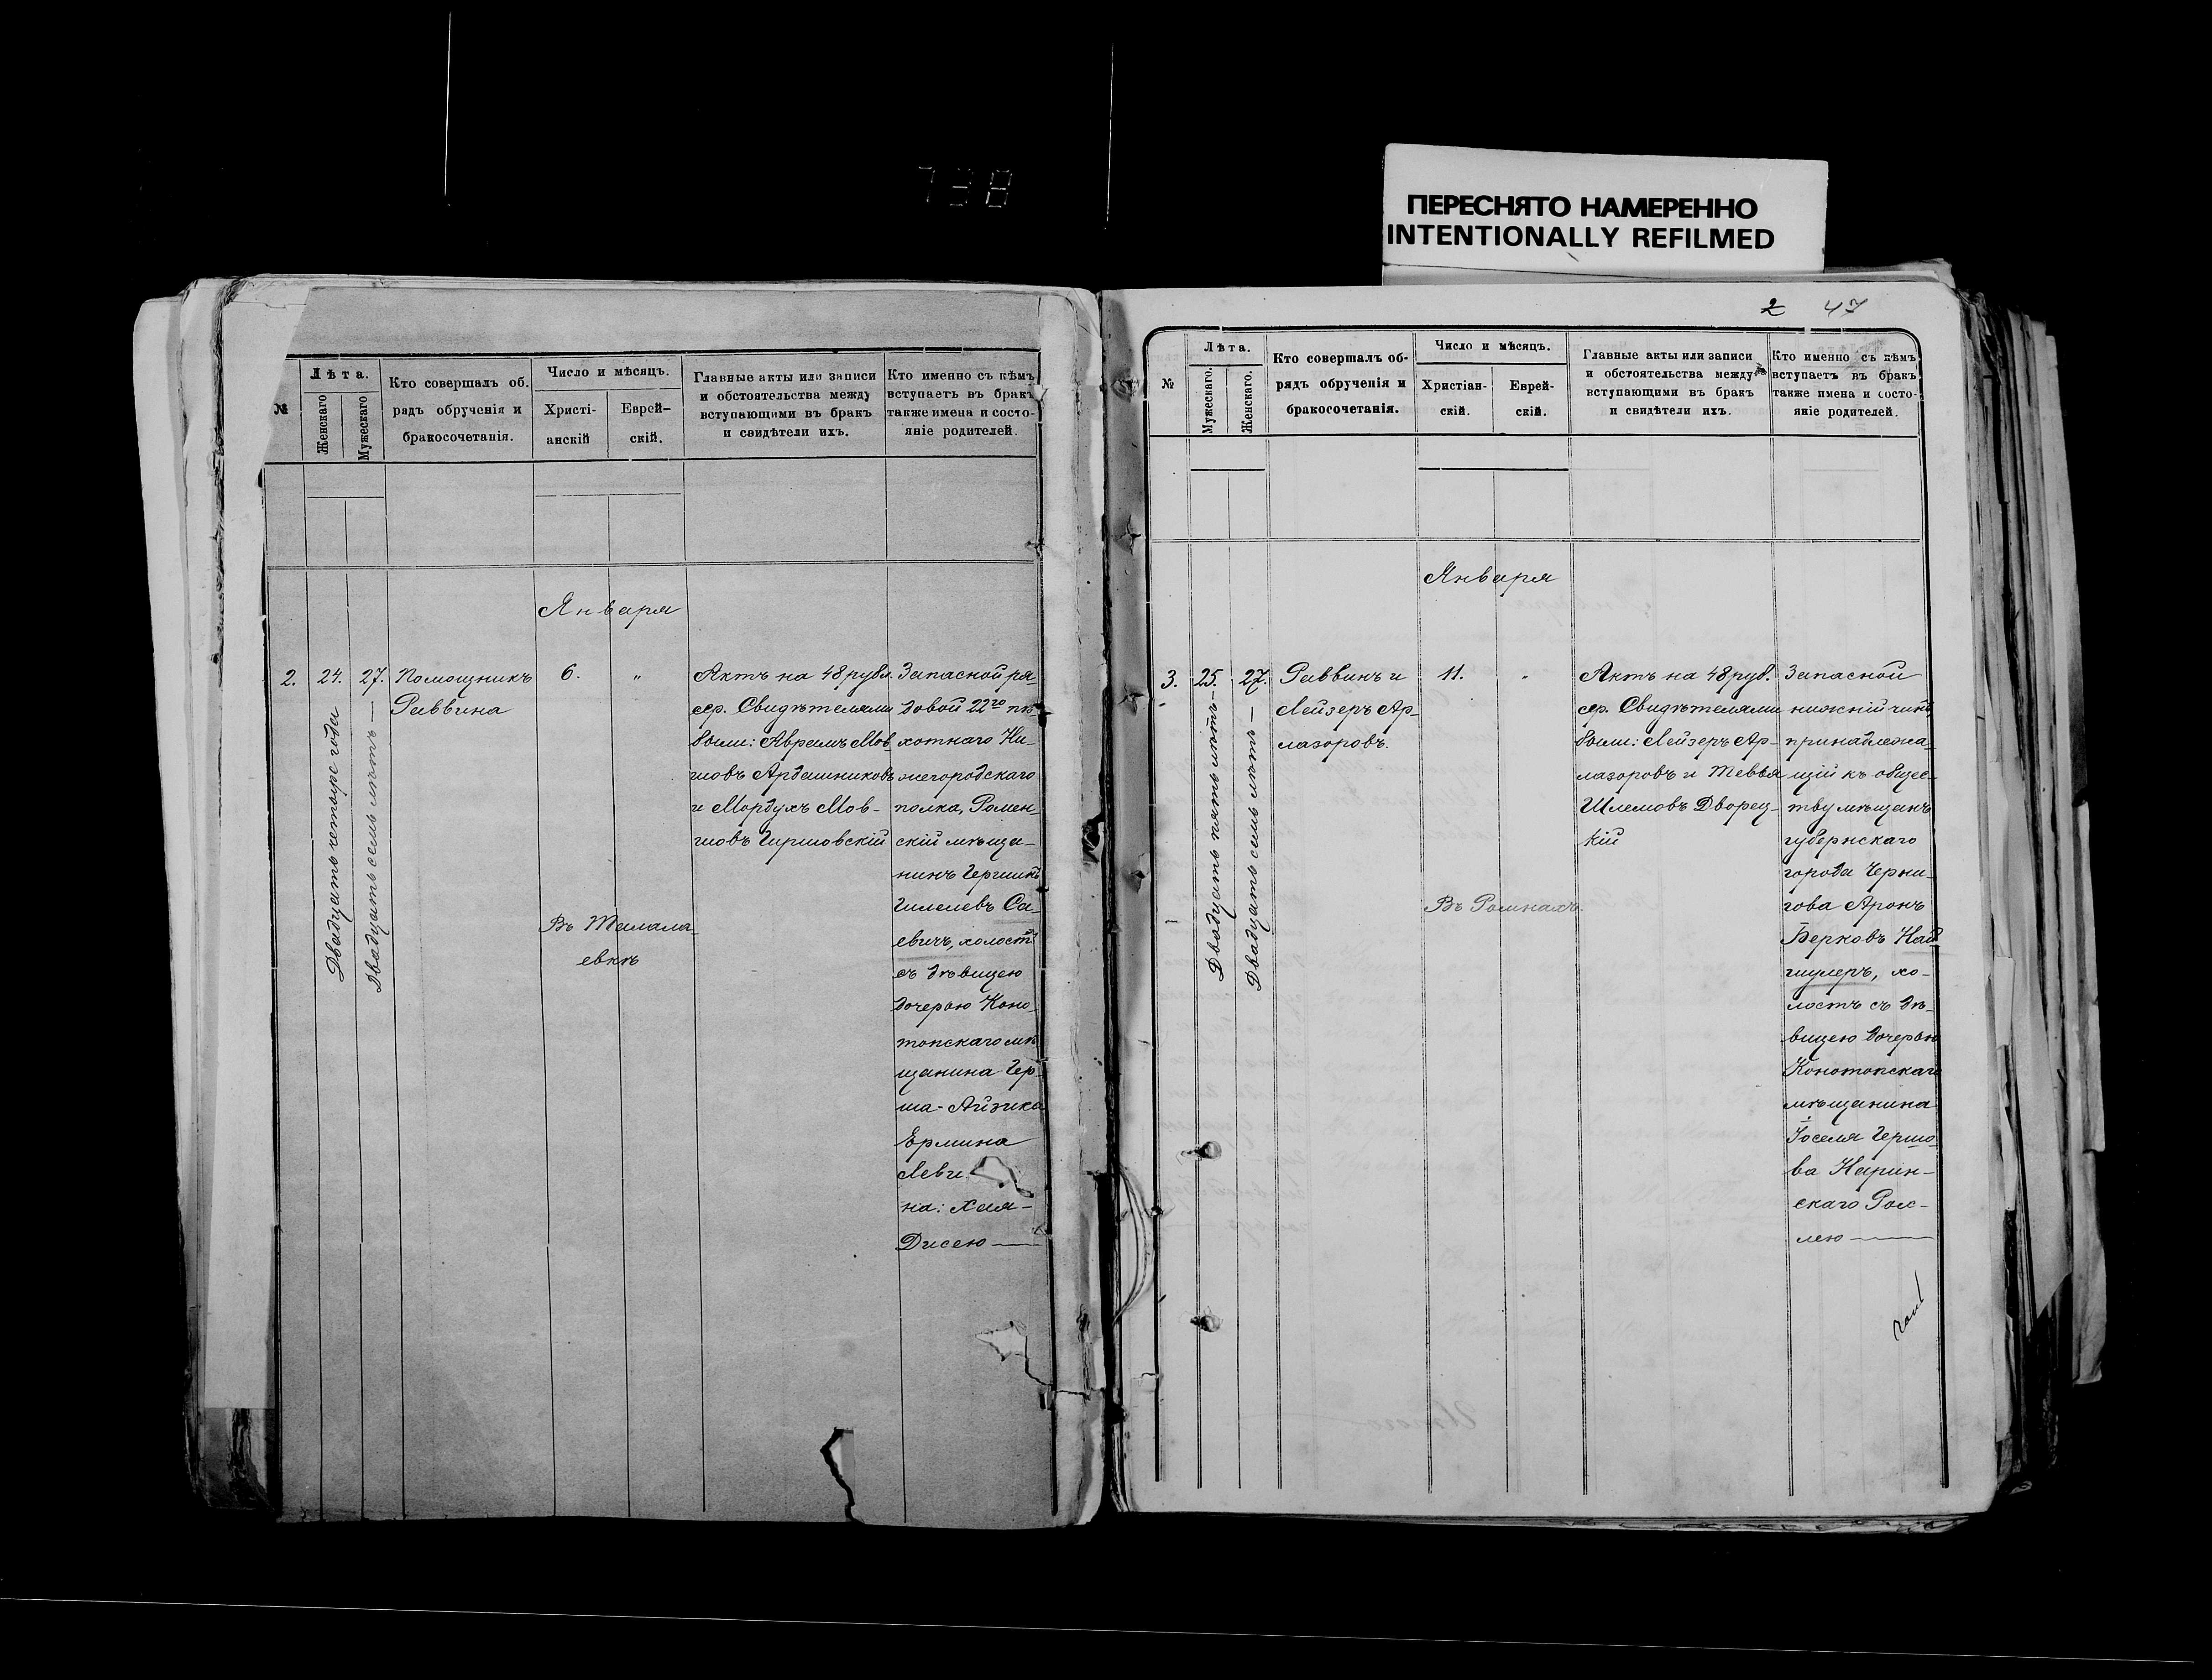 738
ПЕРЕСНЯТО НАМЕРЕННО
INTENTIONALLY REFILMED
№
Лѣта.
Женскаго
Мужескаго
Кто совершалъ об.
рядъ обрученія и
бракосочетанія.
Число и мѣсяцъ.
Христі-
анскій
Еврей-
скій.
Главные акты или записи
и обстоятельства между
вступающими въ бракъ
и свидѣтели ихъ.
Кто именно съ кѣмъ
вступаетъ въ бракъ
также имена и состо-
яніе родителей.
Января
2.
24.
Двадцать четыре года
27.
Двадцать семь лѣтъ —
Помощникъ
Раввина
6.
"
Въ Талала-
евкѣ
Актъ на 48 рубл.
сер. Свидѣтелями
были: Аврамъ Мов-
шовъ Ардашниковъ
и Мордухъ Мов-
шовъ Гиршовскій
Запасной ря-
довой 22го пѣ-
хотнаго Ни-
жегородскаго
полка, Ромен-
скій мѣща-
нинъ Гершнъ
Гилелевъ Са-
евичъ, холостъ
съ дѣвицею
дочерью Коно-
топскаго мѣ
щанина Гер-
ша-Айзика
Ермина
Леви
на: Хая-
Дисею —
2 47
№
Лѣта.
Мужескаго.
Женскаго.
Кто совершалъ об-
рядъ обрученія и
бракосочетанія.
Число и мѣсяцъ.
Христіан-
скій.
Еврей-
скій.
Главные акты или записи
и обстоятельства между
вступающими въ бракъ
и свидѣтели ихъ.
Кто именно съ кѣмъ
вступаетъ въ бракъ
также имена и состо-
яніе родителей.
Января
3.
25.
Двадцать пять лѣтъ —
27.
Двадцать семь лѣтъ —
Раввинъ и
Лейзеръ Ар-
лазоровъ.
11.
"
Въ Ромнахъ.
Актъ на 48 руб.
сер. Свидѣтелями
были: Лейзеръ Ар-
лазоровъ и Тевья
Шлемовъ Дворец-
кій
Запасной
нижній чинъ,
принадлежа-
щій къ общес-
тву мѣщанъ
губернскаго
города Черни-
гова Аронъ
Берковъ Най-
шулеръ, хо-
лостъ съ дѣ-
вицею дочерью
Конотопскаго
мѣщанина
Іоселя Гершо-
ва Нарин-
скаго Рох-
лею —